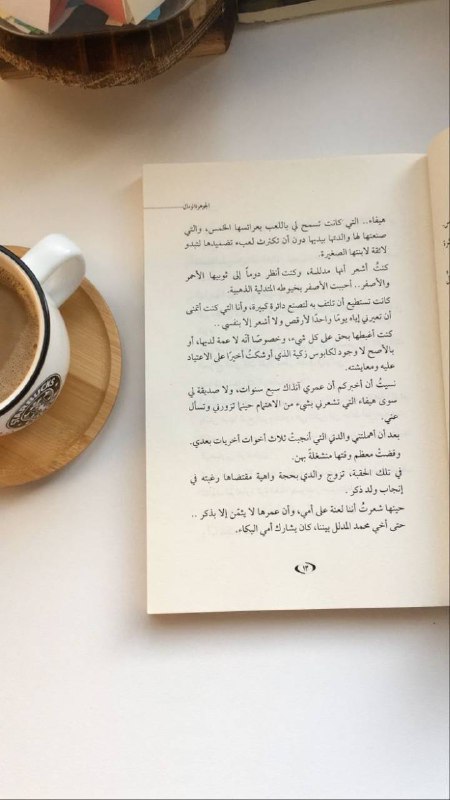 الجوهرة الرمال
هيفاء.. التي كانت تسمح لي باللعب بعرائسها الخمس، والتي
صنعتها لها والدتها بيديها دون أن تكترث لعبء تضميدها لتبدو
لائقة لابنتها الصغيرة.
كنتُ أشعر أنها مدللـة، وكنت أنظر دوماً إلى ثوبيها الأحمر
والأصفر.. أحببت الأصفر بخيوطه المتدلية الذهبية.
كانت تستطيع أن تلتف به لتصنع دائرة كبيرة، وأنا التي كنت أتمنى
أن تعيرني إياه يومًا واحدًا لأرقص ولا أشعر إلا بنفسي ..
كنت أغبطها بحق على كل شيء، وخصوصًا أنّه لا عمة لديها، أو
بالأصح لا وجود لكابوس زكية الذي أوشكتُ أخيرًا على الاعتياد
عليه ومعايشته.
نسيتُ أن أخبركم أن عمري آنذاك سبع سنوات، ولا صديقة لي
سوى هيفاء التي تشعرني بشيء من الاهتمام حينما تزورني وتسأل
عني.
بعد أن أهملتني والدتي التي أنجبتْ ثلاث أخوات أخريات بعدي.
وقضتْ معظم وقتها منشغلةً بهن.
في تلك الحقبة، تزوج والدي بحجة واهية مقتضاها رغبته في
إنجاب ولد ذكر .
حينها شعرتُ أننا لعنة على أمي، وأن عمرها لا يثمّن إلا بذكر ..
حتى أخي محمد المدلل بيننا، كان يشارك أمي البكاء.
١٣